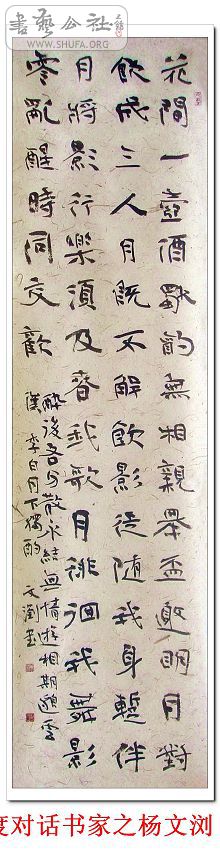 書藝公社
WWW.SHUFA.ORG
花間一壺酒獨酌無相親舉盃邀明月對
飲成三人月既不解飲影徒隨我身暫伴
月將影行樂須及春我歌月徘徊我舞影
零亂醒時同交歡
醉後各分散永結無情遊相期邈雲
漢 李白月下獨酌 文瀏書
度对话书家之杨文浏